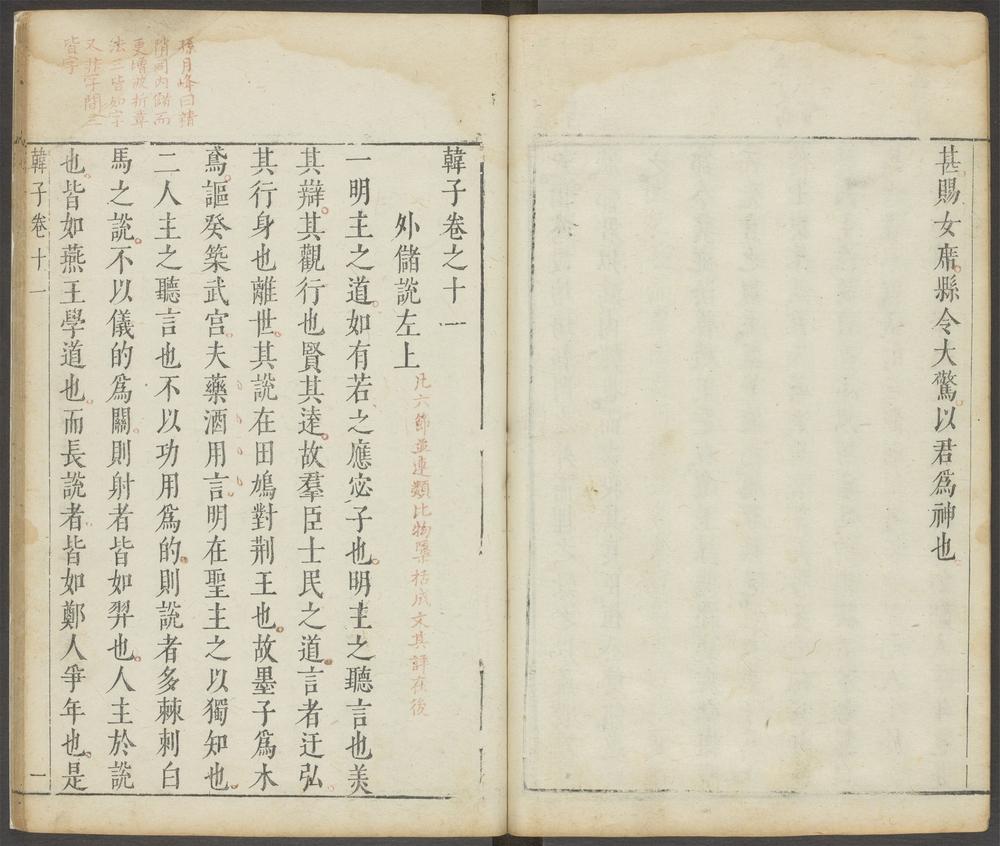 甚賜女席縣令大驚以君爲神也
韓子卷之十一
外儲說左上
凡六節並連類比物檃括成文其評在後
一明主之道如有若之應宓子也明主之聽言也美
其辯其觀行也賢其遠故羣臣士民之道言者迂弘
其行身也離世其說在田鳩對荆王也故墨子爲木
鳶謳癸築武宮夫藥酒用言明在聖主之以獨知也
二人主之聽言也不以功用爲的則說者多棘刺白
馬之說不以儀的爲關則射者皆如羿也人主於說
也皆如燕王學道也而長說者皆如鄭人爭年也是
韓子卷十一
一
孫月峰曰精
陗同內儲而
更增波折章
法三皆如字
又非字間三
皆字